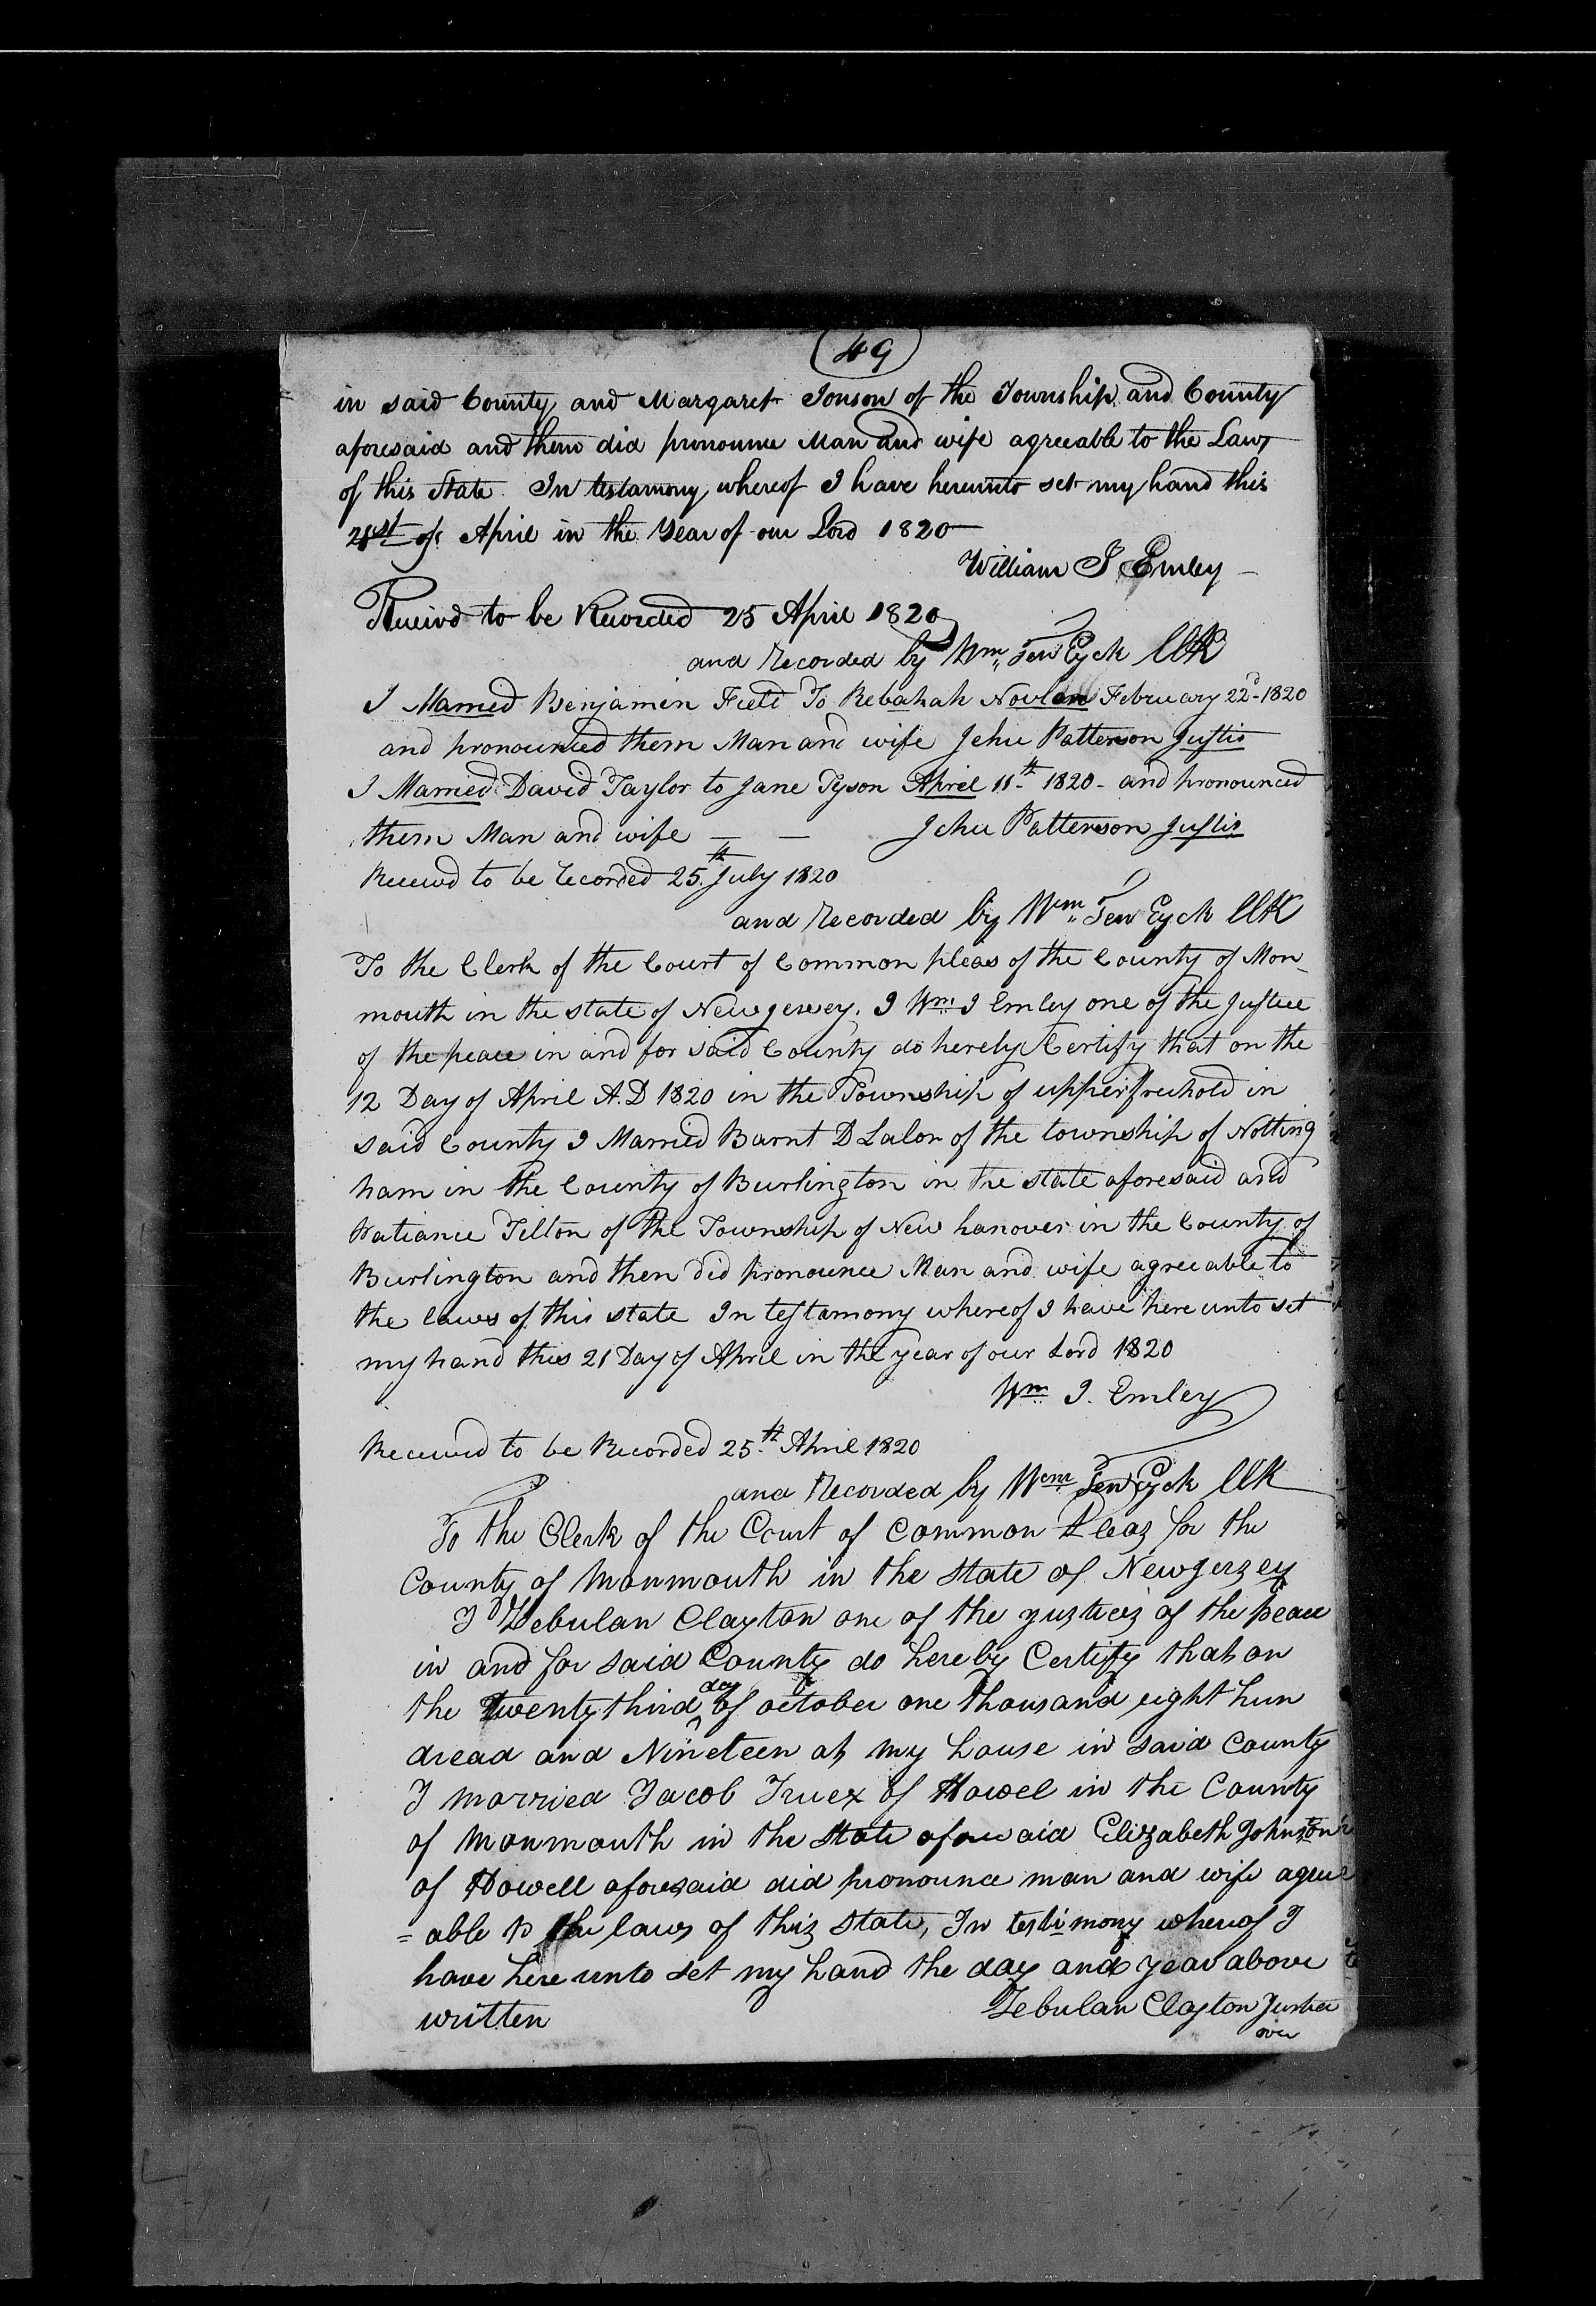 49
in said County and Margaret Jonson of the Township and County
aforesaid and them did pronounce Man and wife agreeable to the Laws
of this State. In testamony whereof I have hereunto set my hand this
21st of April in the Year of our Lord 1820
William J Emley
Receivd to be Recorded 25 April 1820
and Recorded by Wm Ten Eyck Clk
I Married Benjamin Field To Rebahah Novlan February 22d 1820
and pronounced them Man and wife Jehu Patterson Justis
I Married David Taylor to Jane Tyson April 11th 1820 - and pronounced
them Man and wife — — Jehu Patterson Justis
Receivd to be Recorded 25th July 1820
and Recorded by Wm Ten Eyck Clk
To the Clerk of the Court of Common pleas of the County of Mon-
mouth in the state of New jersey. I Wm I Emley one of the Justice
of the peace in and for said County do hereby Certify that on the
12 Day of April A.D 1820 in the Township of upper freehold in
said County I Married Barnt D Lalor of the township of Notting
ham in the County of Burlington in the state aforesaid and
Patiance Tilton of the Township of New hanover in the County of
Burlington and then did pronounce Man and wife agreeable to
the laws of this state In testamony whereof I have here unto set
my hand this 21 Day of April in the year of our Lord 1820
Wm I. Emley
Received to be Recorded 25th April 1820
and Recorded by Wm Ten Eyck Clk
To the Clerk of the Court of Common Pleas for the
County of Monmouth in the State of New jersey
I Zebulan Clayton one of the justicis of the peace
in and for said County do hereby Certify that on
the twenty third day of october one thousand eight hun
dread and Nineteen at my house in said County
I married Jacob Truex of Howel in the County
of Monmouth in the State aforesaid Elizabeth Johnston
of Howell aforesaid did pronounce man and wife agree
= able to the laws of this State, In testimony whereof I
have here unto set my hand the day and year above
written Zebulan Clayton Justice
over